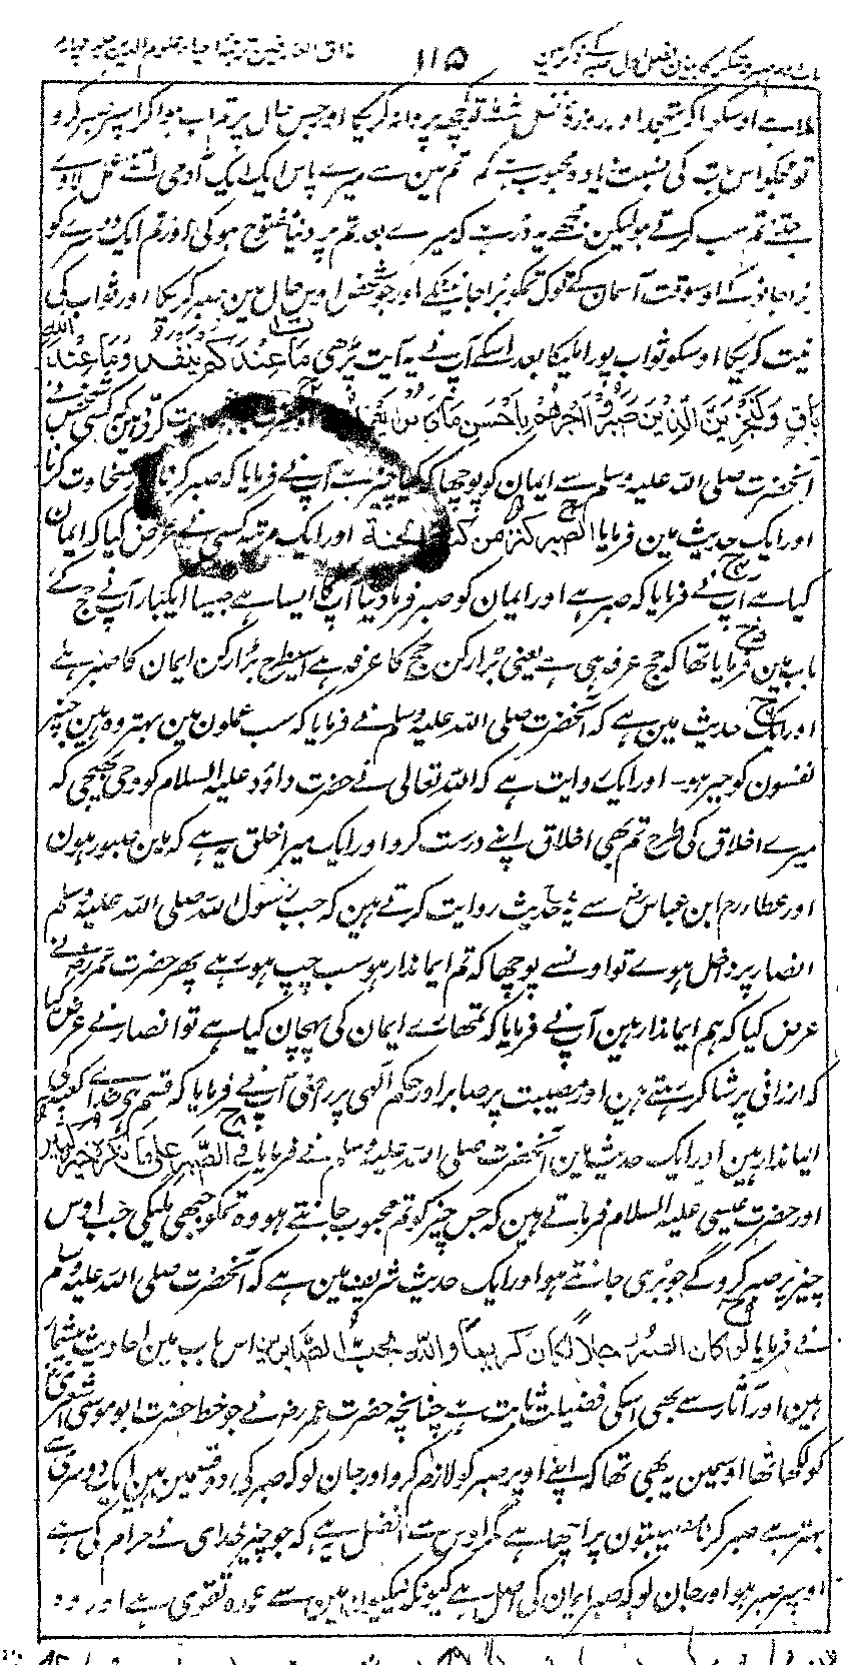 باب صبر و شکر کا بیان فصل اول صبر کے ذکر مین ۱۱۵ مذاق العارفین ترجمہ احیاء علوم الدین جلد چہارم
ملا ہے اوسکو اگر تہجد اور روزۂ نفل نہ ملے تو کچھ پروا نہ کریگا اور جس حال پر تم اب ہو اگر اسپر صبر کرو
تو مجکو اس بات کی نسبت زیادہ محبوب ہے کہ تم مین سے میرے پاس ایک ایک آدمی اتنے عمل لاوے
جتنے تم سب کرتے ہو لیکن مجھے یہ ڈر ہے کہ میرے بعد تم پر دنیا مفتوح ہوگی اور تم ایک دوسرے کو
برا جانوگے اوسوقت آسمان کے لوگ تمکو برا جانینگے اور جو شخص اوس حال مین صبر کریگا اور ثواب کی
نیت کریگا اوسکو ثواب پورا ملیگا بعد اسکے آپ نے یہ آیت پڑھی مَا عِنْدَكُمْ يَنْفَدُ وَمَا عِنْدَ اللّٰهِ
بَاقٍ وَلَنَجْزِيَنَّ الَّذِيْنَ صَبَرُوْا اَجْرَهُمْ بِاَحْسَنِ مَا كَانُوْا يَعْمَلُوْنَ کرتے ہین کہ کسی شخص نے
آنحضرت صلی اللہ علیہ وسلم سے ایمان کو پوچھا کہ کیا چیز ہے آپ نے فرمایا کہ صبر کرنا اور سخاوت کرنا
اور ایک حدیث مین فرمایا الصبر کنز من کنوز الجنة اور ایک مرتبہ کسی نے عرض کیا کہ ایمان
کیا ہے آپ نے فرمایا کہ صبر ہے اور ایمان کو صبر فرما دینا آپ کا ایسا ہے جیسا ایکبار آپ نے حج کے
باب مین فرمایا تھا کہ حج عرفہ ہی ہے یعنی بڑا رکن حج کا عرفہ ہے اسیطرح بڑا رکن ایمان کا صبر ہے
اور ایک حدیث مین ہے کہ آنحضرت صلی اللہ علیہ وسلم نے فرمایا کہ سب عملون مین بہتر وہ ہین جنپر
نفسون کو جبر ہو۔ اور ایک روایت ہے کہ اللہ تعالی نے حضرت داؤد علیہ السلام کو وحی بھیجی کہ
میرے اخلاق کی طرح تم بھی اخلاق اپنے درست کرو اور ایک میرا خلق یہ ہے کہ مین صبور ہون
اور عطا رح ابن عباس رض سے یہ حدیث روایت کرتے ہین کہ جب رسول اللہ صلی اللہ علیہ وسلم
انصار پر داخل ہوے تو اونسے پوچھا کہ تم ایماندار ہو سب چپ ہو رہے پھر حضرت عمر رض نے
عرض کیا کہ ہم ایماندار ہین آپ نے فرمایا کہ تمھارے ایمان کی پہچان کیا ہے تو انصار نے عرض کیا
کہ ارزانی پر شاکر رہتے ہین اور مصیبت پر صابر اور حکم الٰہی پر راضی آپ نے فرمایا کہ قسم ہے خداے کعبہ کی
ایماندار ہین اور ایک حدیث مین آنحضرت صلی اللہ علیہ وسلم نے فرمایا فی الصَّبْرِ عَلٰی مَا تَکْرَهُ خَیْرٌ کَثِیْرٌ
اور حضرت عیسی علیہ السلام فرماتے ہین کہ جس چیز کو تم محبوب جانتے ہو وہ تمکو جبھی ملیگی جب اوس
چیز پر صبر کروگے جو بری جانتے ہو اور ایک حدیث شریف مین ہے کہ آنحضرت صلی اللہ علیہ وسلم
نے فرمایا لو کان الصبر رجلاً لکان کریماً واللّٰه یحب الصابرین اس باب مین احادیث بیشمار
ہین اور آثار سے بھی اسکی فضیلت ثابت ہے چنانچہ حضرت عمر رض نے جو خط حضرت ابو موسی اشعری رض
کو لکھا تھا اوسمین یہ بھی تھا کہ اپنے اوپر صبر کو لازم کرو اور جان لو کہ صبر کی دو قسمین ہین ایک دوسری سے
بہتر ہے صبر کرنا مصیبتون پر اچھا ہے مگر اوس سے افضل یہ ہے کہ جو چیز خدای نے حرام کی ہے
اوسپر صبر ہو اور جان لو کہ صبر ایمان کی اصل ہے کیونکہ نیکیون مین سے عمدہ تقوی ہے اور وہ